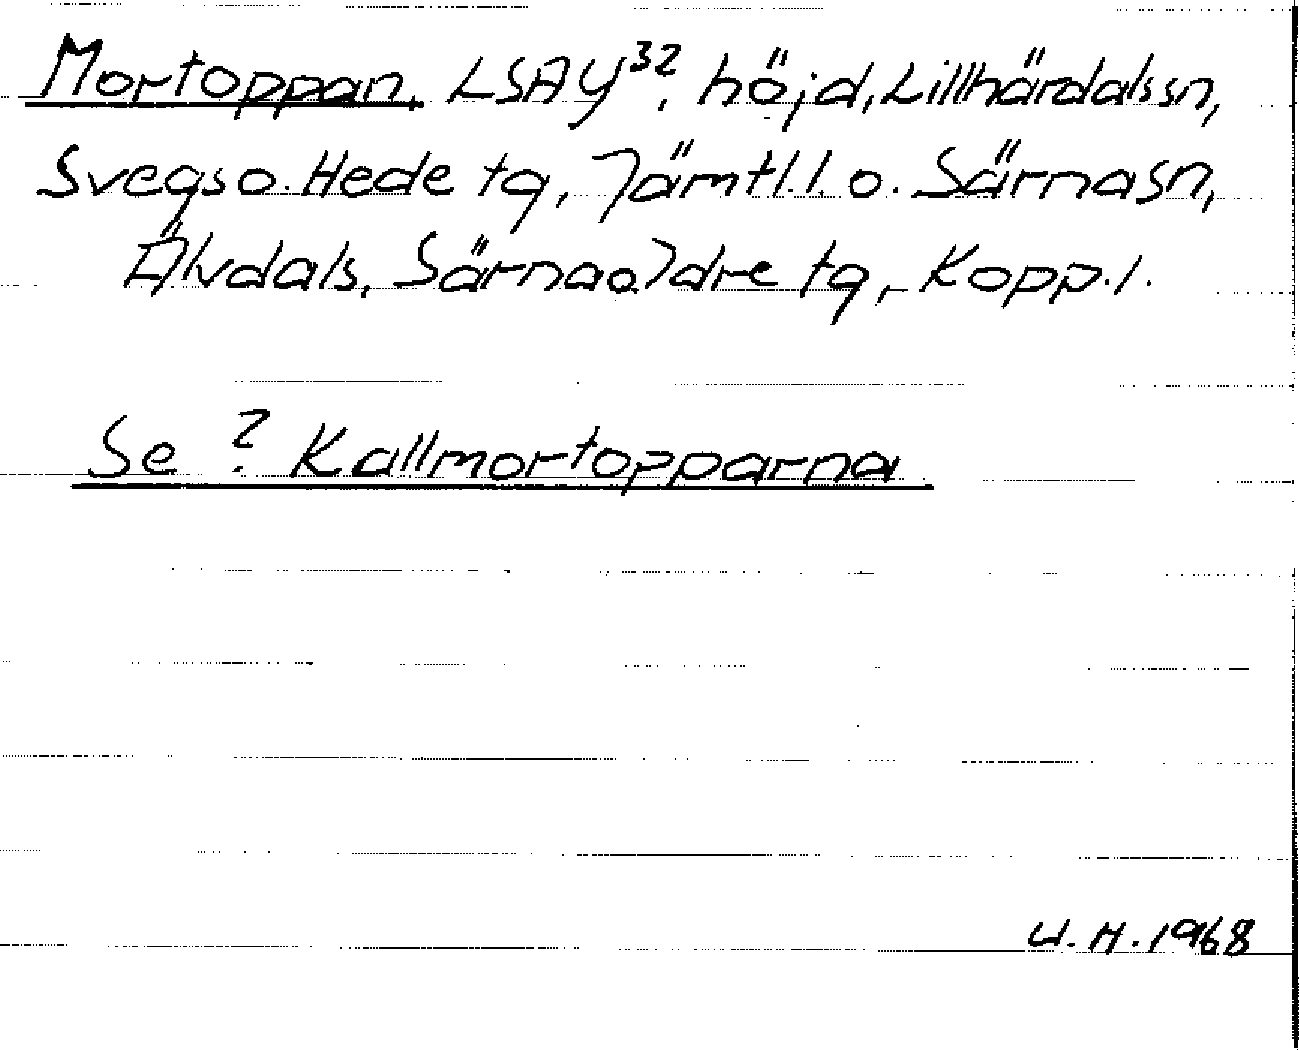 Mortoppan, LSAY³² ? höjd, Lillhärdals sn,
Svegs o. Hede tg, Jämtl. l. o. Särna sn,
Älvdals, Särna o Idre tg, Kopp. l.
Se ? Kallmortopparna
U. H. 1968